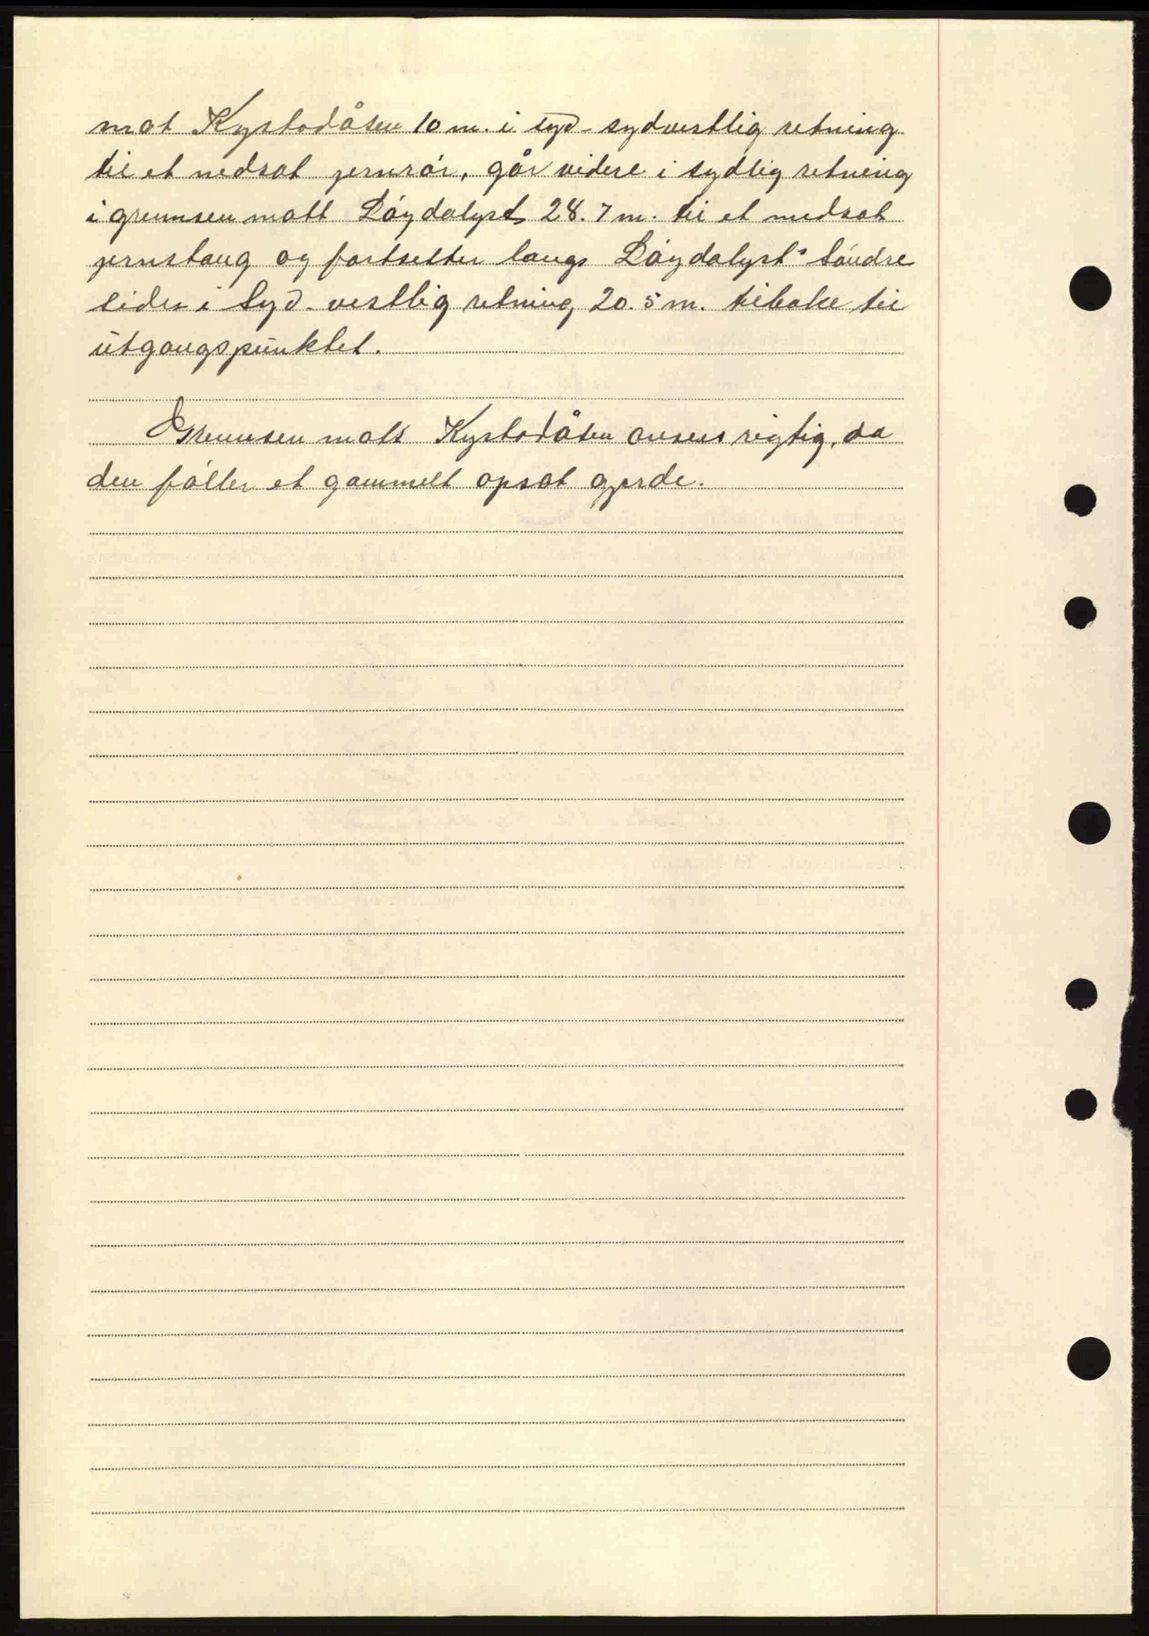 mot Kystadåsen 10 m. i syd-sydvestlig retning
til et nedsat jernrör, går videre i sydlig retning
i grennsen mott Döydalyst 28.7 m. til et nedsat
jernstang og fortsetter langs Döydalyst's söndre
side i Syd-vestlig retning 20.5 m. tilbake til
utgangspunktet.
Grennsen mott Kystadåsen anses rigtig, da
den föller et gammelt opsat gjerde.